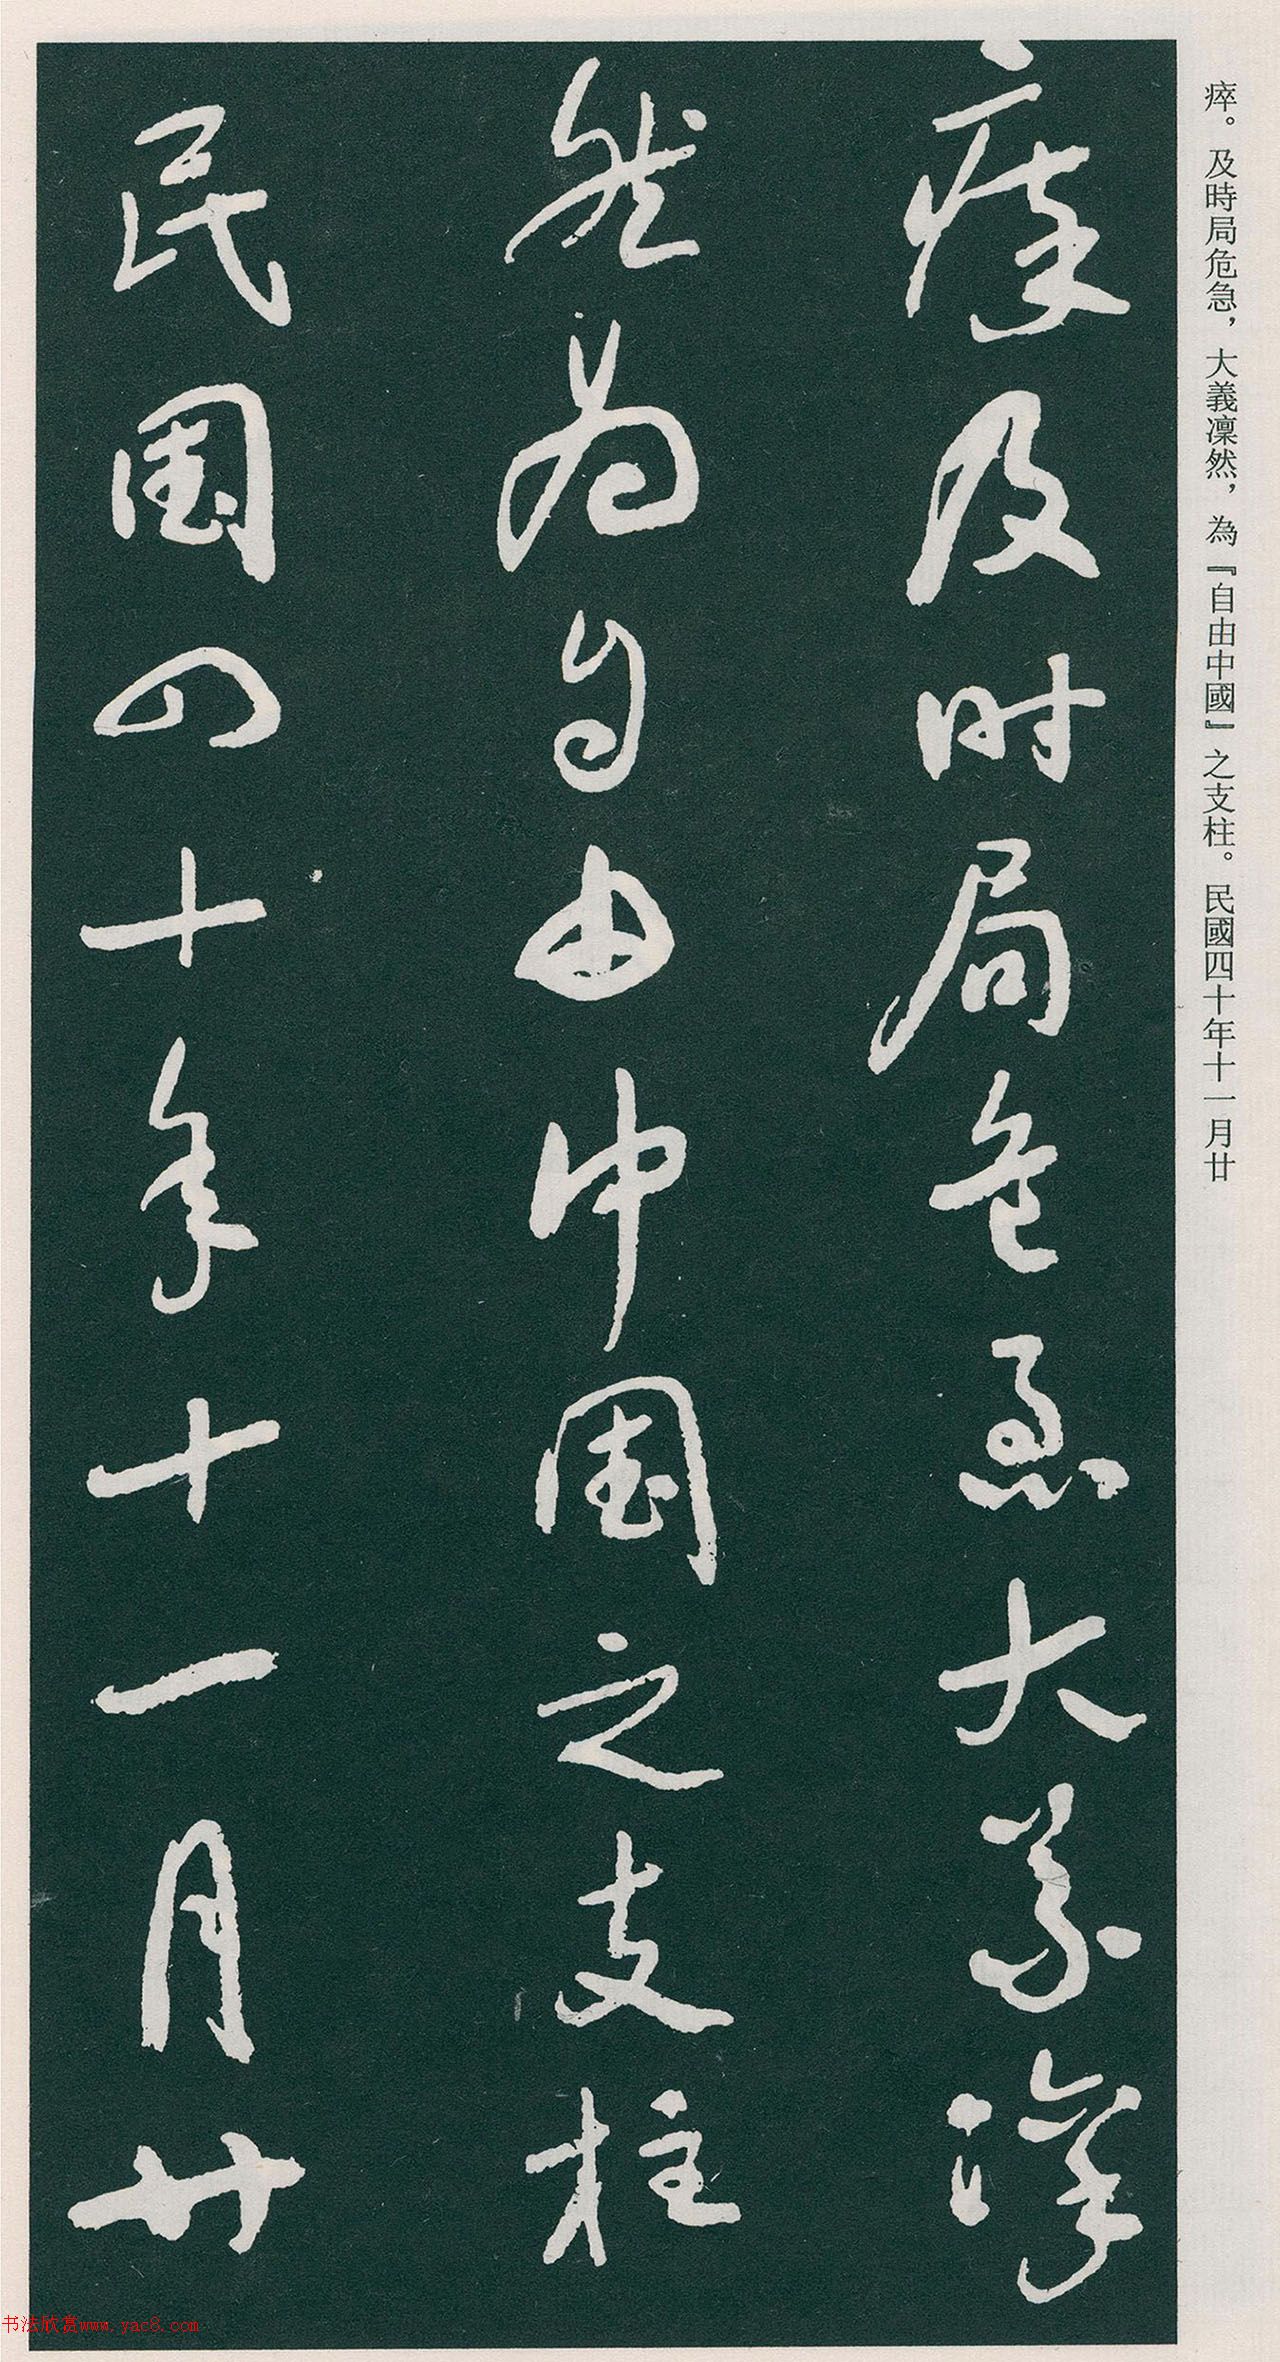 瘁。及時局危急，大義凜然，為『自由中國』之支柱。民國四十年十一月廿
瘁及时局危急大義凜
然為自由中国之支柱
民国四十年十一月廿
书法欣赏www.yac8.com